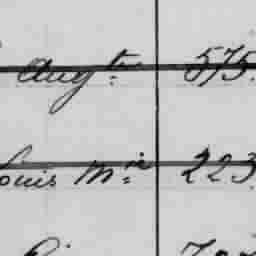 Augt. 575.
Louis Min 223